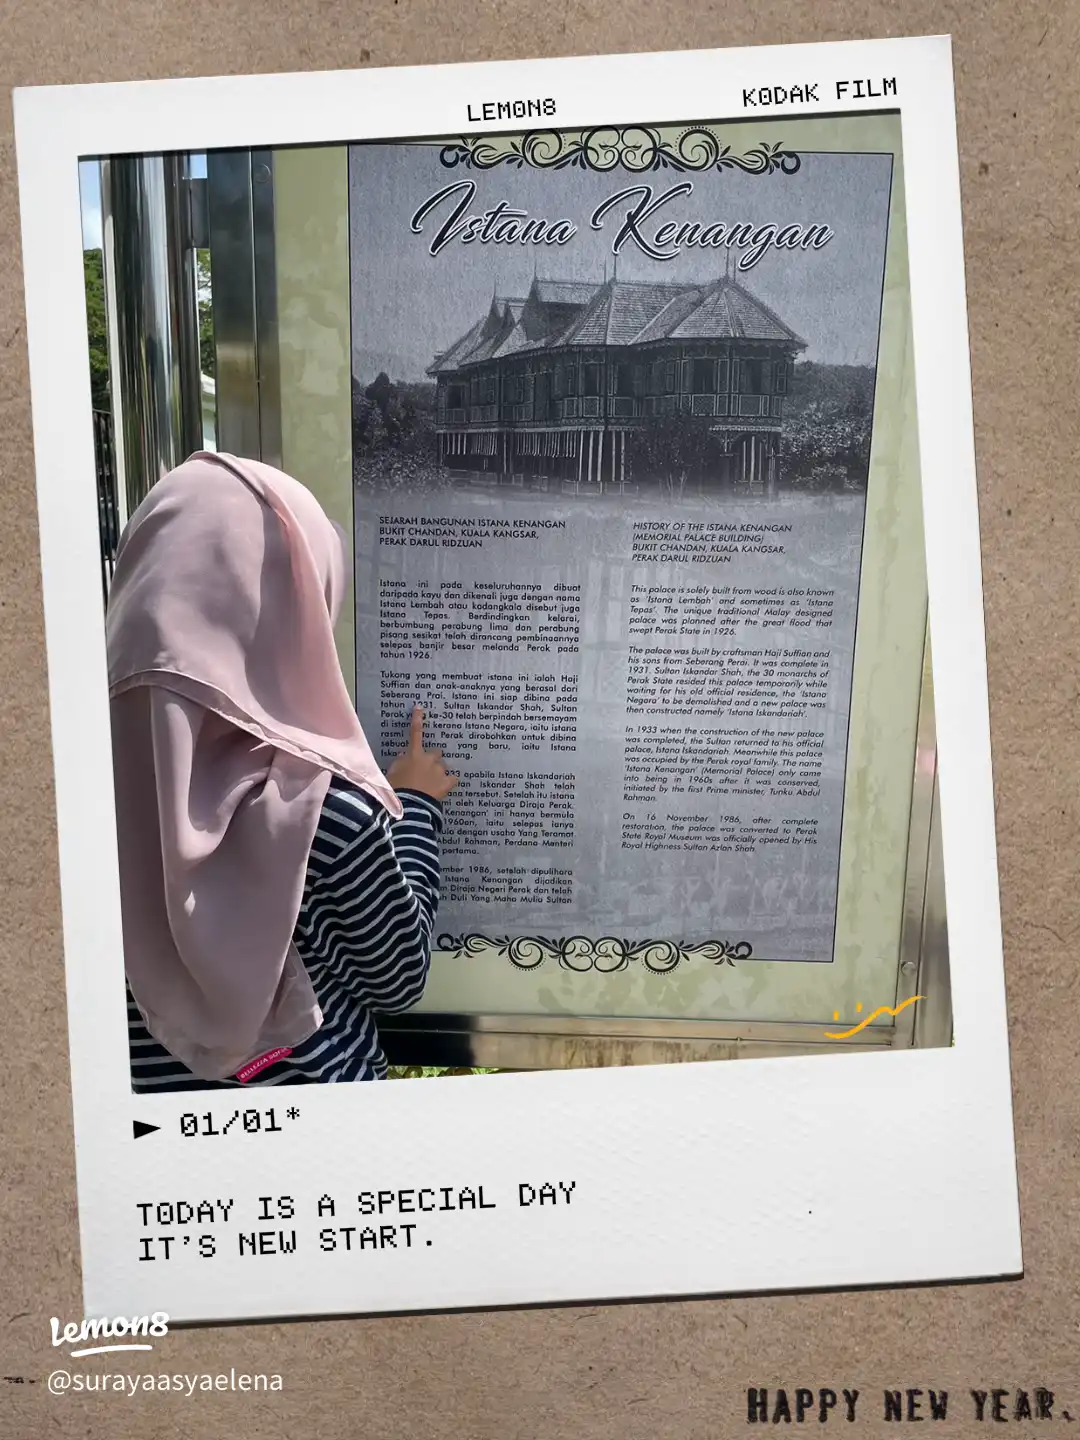 LEMON8 KODAK FILM
Istana Kenangan
SEJARAH BANGUNAN ISTANA KENANGAN
BUKIT CHANDAN, KUALA KANGSAR,
PERAK DARUL RIDZUAN
Istana ini pada keseluruhannya dibuat
daripada kayu dan dikenali juga dengan nama
Istana Lembah atau kadangkala disebut juga
Istana Tepas. Berdindingkan kelarai,
berbumbung perabung lima dan perabung
pisang sesikat telah dirancang pembinaannya
selepas banjir besar melanda Perak pada
tahun 1926.
Tukang yang membuat istana ini ialah Haji
Suffian dan anak-anaknya yang berasal dari
Seberang Prai. Istana ini siap dibina pada
tahun 1931. Sultan Iskandar Shah, Sultan
Perak yang ke-30 telah berpindah bersemayam
di istana ini kerana Istana Negara, iaitu istana
rasmi Perak dirobohkan untuk dibina
sebuah istana yang baru, iaitu Istana
karang.
apabila Istana Iskandariah
Iskandar Shah telah
tersebut. Setelah itu istana
oleh Keluarga Diraja Perak.
Kenangan' ini hanya bermula
1960an, iaitu selepas ianya
dengan usaha Yang Teramat
Abdul Rahman, Perdana Menteri
pertama.
1986, setelah dipulihara
Istana Kenangan dijadikan
Diraja Negeri Perak dan telah
Duli Yang Maha Mulia Sultan
HISTORY OF THE ISTANA KENANGAN
(MEMORIAL PALACE BUILDING)
BUKIT CHANDAN, KUALA KANGSAR,
PERAK DARUL RIDZUAN
This palace is solely built from wood is also known
as 'Istana Lembah' and sometimes as 'Istana
Tepas'. The unique traditional Malay designed
palace was planned after the great flood that
swept Perak State in 1926.
The palace was built by craftsman Haji Suffian and
his sons from Seberang Perai. It was complete in
1931. Sultan Iskandar Shah, the 30 monarchs of
Perak State resided this palace temporarily while
waiting for his old official residence, the 'Istana
Negara' to be demolished and a new palace was
then constructed namely 'Istana Iskandariah'.
In 1933 when the construction of the new palace
was completed, the Sultan returned to his official
palace, Istana Iskandariah. Meanwhile this palace
was occupied by the Perak royal family. The name
'Istana Kenangan' (Memorial Palace) only came
into being in 1960s after it was conserved,
initiated by the first Prime minister, Tunku Abdul
Rahman.
On 16 November 1986, after complete
restoration, the palace was converted to Perak
State Royal Museum was officially opened by His
Royal Highness Sultan Azlan Shah
▶ 01/01*
TODAY IS A SPECIAL DAY
IT'S NEW START.
Lemon8
@surayaasyaelena
HAPPY NEW YEAR.